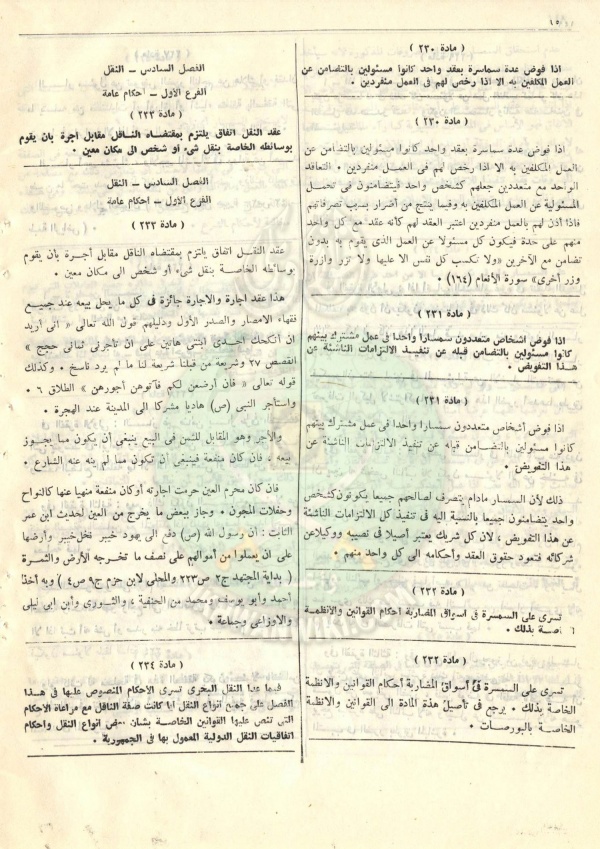 ١٥
( مادة ٢٣٠ )
اذا فوض عدة سماسرة بعقد واحد كانوا مسئولين بالتضامن عن
العمل المكلفين به الا اذا رخص لهم فى العمل منفردين .
( مادة ٢٣٠ )
اذا فوض عدة سماسرة بعقد واحد كانوا مسئولين بالتضامن عن
العمل المكلفين به الا اذا رخص لهم فى العمـل منفردين . التعاقد
الواحد مع متعددين جعلهم كشخص واحد فيتضامنون فى تحمـل
المسئولية عن العمل المكلفين به وفيما ينتج من أضرار بسبب تصرفاتهم
فاذا أذن لهم بالعمل منفردين اعتبر العقد لهم كأنه عقد مع كل واحد
منهم على حدة فيكون كل مسئولا عن العمل الذى يقوم به بدون
تضامن مع الآخرين «ولا تكسب كل نفس الا عليها ولا تزر وازرة
وزر أخرى» سورة الأنعام (١٦٤) .
( مادة ٢٣١ )
اذا فوض اشخاص متعددون سمسارا واحدا فى عمل مشترك بينهم
كانوا مسئولين بالتضامن قبله عن تنفيذ الالتزامات الناشئة عن
هذا التفويض .
( مادة ٢٣١ )
اذا فوض أشخاص متعددون سمسارا واحدا فى عمل مشترك بينهم
كانوا مسئولين بالتضامن قبله عن تنفيذ الالتزامات الناشئة عن
هذا التفويض .
ذلك لأن السمسار مادام يتصرف لصالحهم جميعا يكونون كشخص
واحد يتضامنون جميعا بالنسبة اليه فى تنفيذ كل الالتزامات الناشئة
عن هذا التفويض ، لان كل شريك يعتبر أصيلا فى نصيبه ووكيلا عن
شركائه فتعود حقوق العقد وأحكامه الى كل واحد منهم .
( مادة ٢٣٢ )
تسرى على السمسرة فى اسواق المضاربة أحكام القوانين والانظمة
اصة بذلك .
( مادة ٢٣٢ )
تسرى على السمسرة فى أسواق المضاربة أحكام القوانين والانظمة
الخاصة بذلك . يرجع فى تأصيل هذة المادة الى القوانين والانظمة
الخاصة بالبورصات .
الفصل السادس – النقل
الفرع الأول – أحكام عامة
( مادة ٢٣٣ )
عقد النقل اتفاق يلتزم بمقتضاه الناقل مقابل أجرة بان يقوم
بوسائطه الخاصة بنقل شىء أو شخص الى مكان معين .
الفصل السادس – النقل
الفرع الأول – احكام عامة
( مادة ٢٣٣ )
عقد النقـل اتفاق يلتزم بمقتضاه الناقل مقابل أجـرة بأن يقوم
بوسائطه الخاصـة بنقل شىء أو شخص الى مكان معين .
هذا عقد اجارة والاجارة جائزة فى كل ما يحل بيعه عند جميـع
فقهاء الامصار والصدر الأول ودليلهم قول الله تعالى « انى أريد
ان أنكحك احـدى ابنتى هاتين على ان تأجرنى ثمانى حجج »
القصص ٢٧ وشريعة من قبلنا شريعة لنا ما لم يرد ناسخ . وكذلك
قوله تعالى « فان أرضعن لكم فآتوهن أجورهن » الطلاق ٦ .
واستأجر النبى (ص) هاديا مشركا الى المدينة عند الهجرة .
والأجر وهو المقابل للثمن فى البيع ينبغى ان يكون مما يجـوز
بيعه ، فان كان منفعة فينبغى ان تكون مما لم ينه عنه الشارع .
فان كان محرم العين حرمت اجارته أو كان منفعة منهيا عنها كالنواح
وحفلات المجون . وجاز ببعض ما يخرج من العين لحديث ابن عمر
الثابت : ان رسول الله (ص) دفع الى يهود خيبر نخل خيبر وأرضها
على ان يعملوا من أموالهم على نصف ما تخـرجه الأرض والثمـرة
( بداية المجتهد ج٢ ص٢٢٣ والمحلى لابن حزم ج٩ ص٤ ) وبه أخذ
احمد وأبو يوسف ومحمد من الحنفية ، والثـورى وابن أبى ليلى
والاوزاعى وجماعة .
( مادة ٢٣٤ )
فيما عدا النقل البحرى تسرى الاحكام المنصوص عليها فى هـذا
الفصل على جميع انواع النقل ايا كانت صفة الناقل مع مراعاة الاحكام
التى تنص عليها القوانين الخاصـة بشأن بعض انواع النقل واحكام
اتفاقيات النقل الدولية المعمول بها فى الجمهورية .